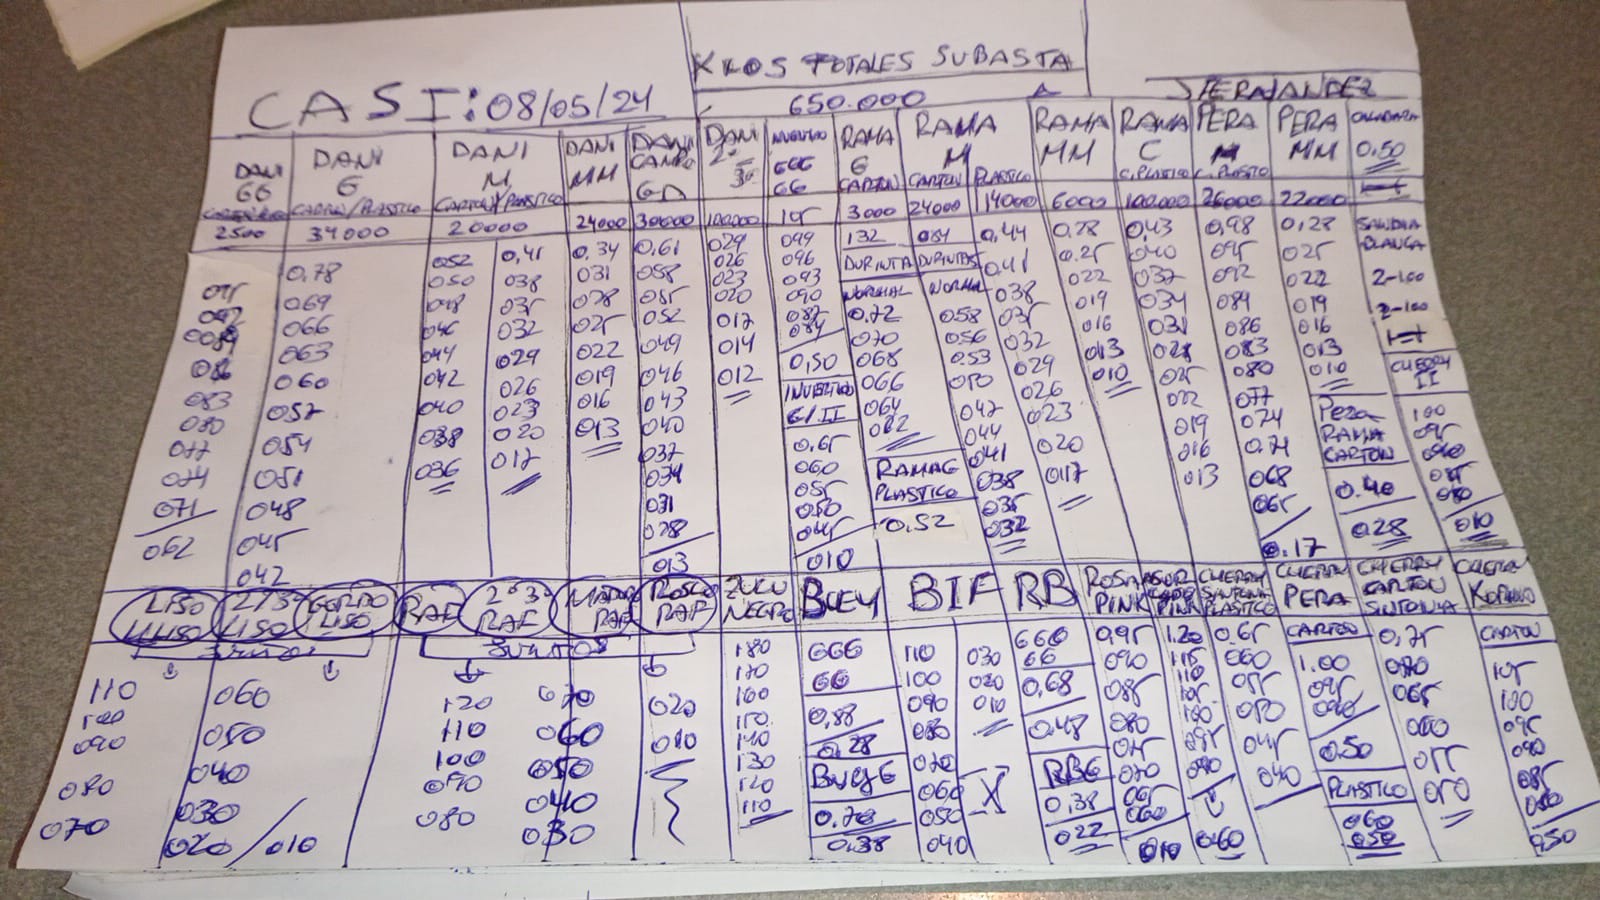 KILOS TOTALES SUBASTA
CASI: 08/05/24
650.000
DANI GG
2500
095
092
089
086
083
080
077
074
071
062
DANI G
CARTON/PLASTICO
34000
0,78
069
066
063
060
057
054
051
048
045
042
DANI M
CARTON/PLASTICO
20000
052
050
048
046
044
042
040
038
036
0,41
038
035
032
029
026
023
020
017
DANI MM
24000
0,34
031
028
025
022
019
016
013
DANI CAMPO
30000
0,61
058
055
052
049
046
043
040
037
034
031
028
013
DANI 2ª
100.000
029
026
023
020
017
014
012
GGG
GG
105
099
096
093
090
087
084
0,50
INVERTIDO
G/II
0,65
060
055
050
045
010
RAMA G
CARTON
3000
132
DURINTA
NORMAL
0,72
070
068
066
064
062
RAMA G
PLASTICO
0.52
RAMA M
CARTON
24000
084
DURINTAS
NORMAL
058
056
053
050
047
044
041
038
035
032
PLASTICO
114000
0,44
041
038
035
032
029
026
023
020
017
RAMA MM
6000
0,28
0.25
022
019
016
013
010
RAMA C
C.PLASTICO
100.000
0,43
040
037
034
031
028
025
022
019
016
013
PERA M
C.PLASTICO
26000
0,98
095
092
089
086
083
080
077
074
0.71
068
065
0.17
PERA MM
22000
0,28
025
022
019
016
013
010
PERA
RAMA
CARTON
0.40
0.28
0.50
SANDIA
BLANCA
CHERRY
II
100
095
090
085
080
010
LISO
110
100
090
080
070
2/3ª
LISO
GORDO
LISO
060
050
040
030
020 / 010
RAF
2ª 3ª
RAF
120
110
100
090
080
070
060
050
040
030
ROSCO
RAF
020
010
ZULU
NEGRO
180
170
160
150
140
130
120
110
BUEY
GGG
GG
0,88
0.28
BUEY G
0.70
0.38
BIF
110
100
090
080
070
060
050
040
030
020
010
X
RB
GGG
GG
0,68
0.48
RBG
0.38
022
ROSA
PINK
0,95
090
085
080
075
070
065
060
010
PINK
1.20
115
110
105
100
095
090
0.60
CHERRY
SINTONIA
PLASTICO
0,65
060
055
050
045
040
CHERRY
PERA
CARTON
1.00
095
090
0.50
PLASTICO
060
050
CHERRY
CARTON
SINTONIA
0,75
070
065
060
055
050
CHERRY
CARTON
105
100
095
090
085
080
050